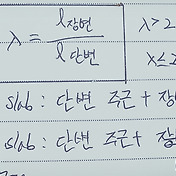 λ = l장변 / l단변
λ > 2
λ ≤ 2
slab : 단변 주근 +
slab : 단변 주근 +